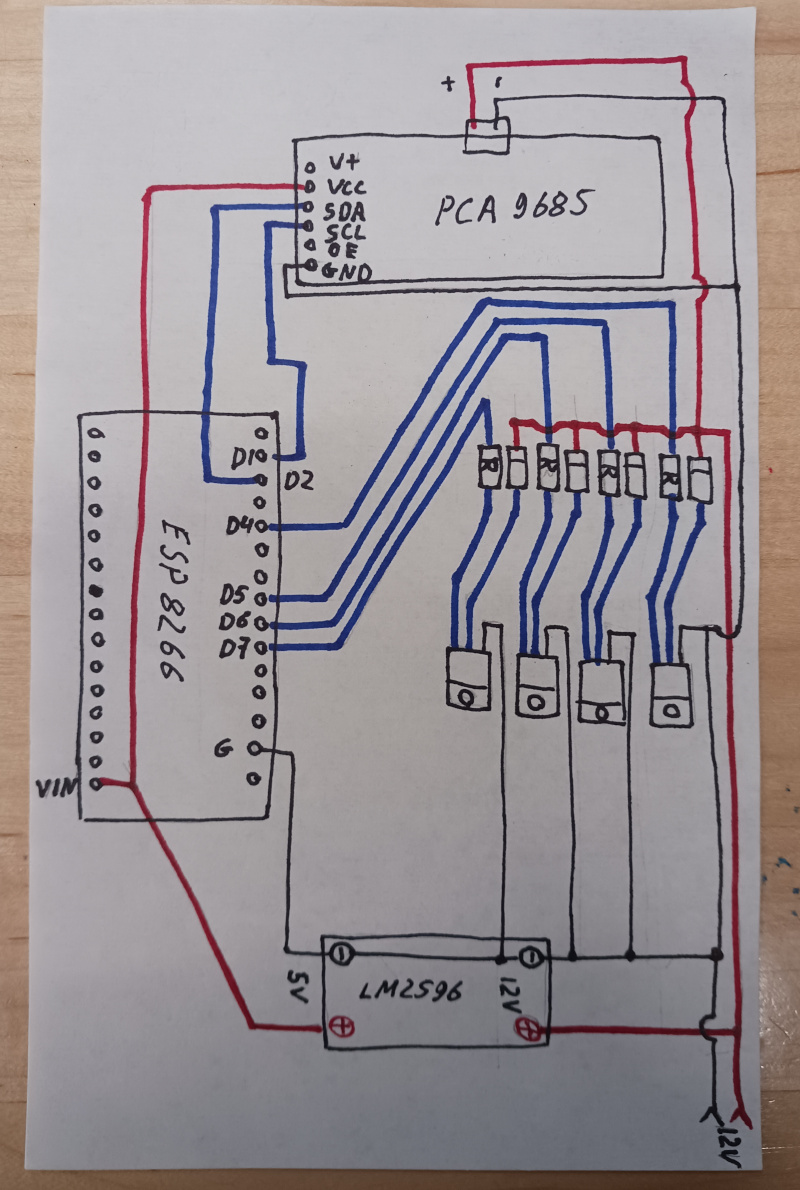 + -
V+
VCC
SDA
SCL
OE
GND
PCA 9685
D1
D2
D4
D5
D6
D7
G
ESP8266
VIN
R R R R
5V
LM2596
12V
12V